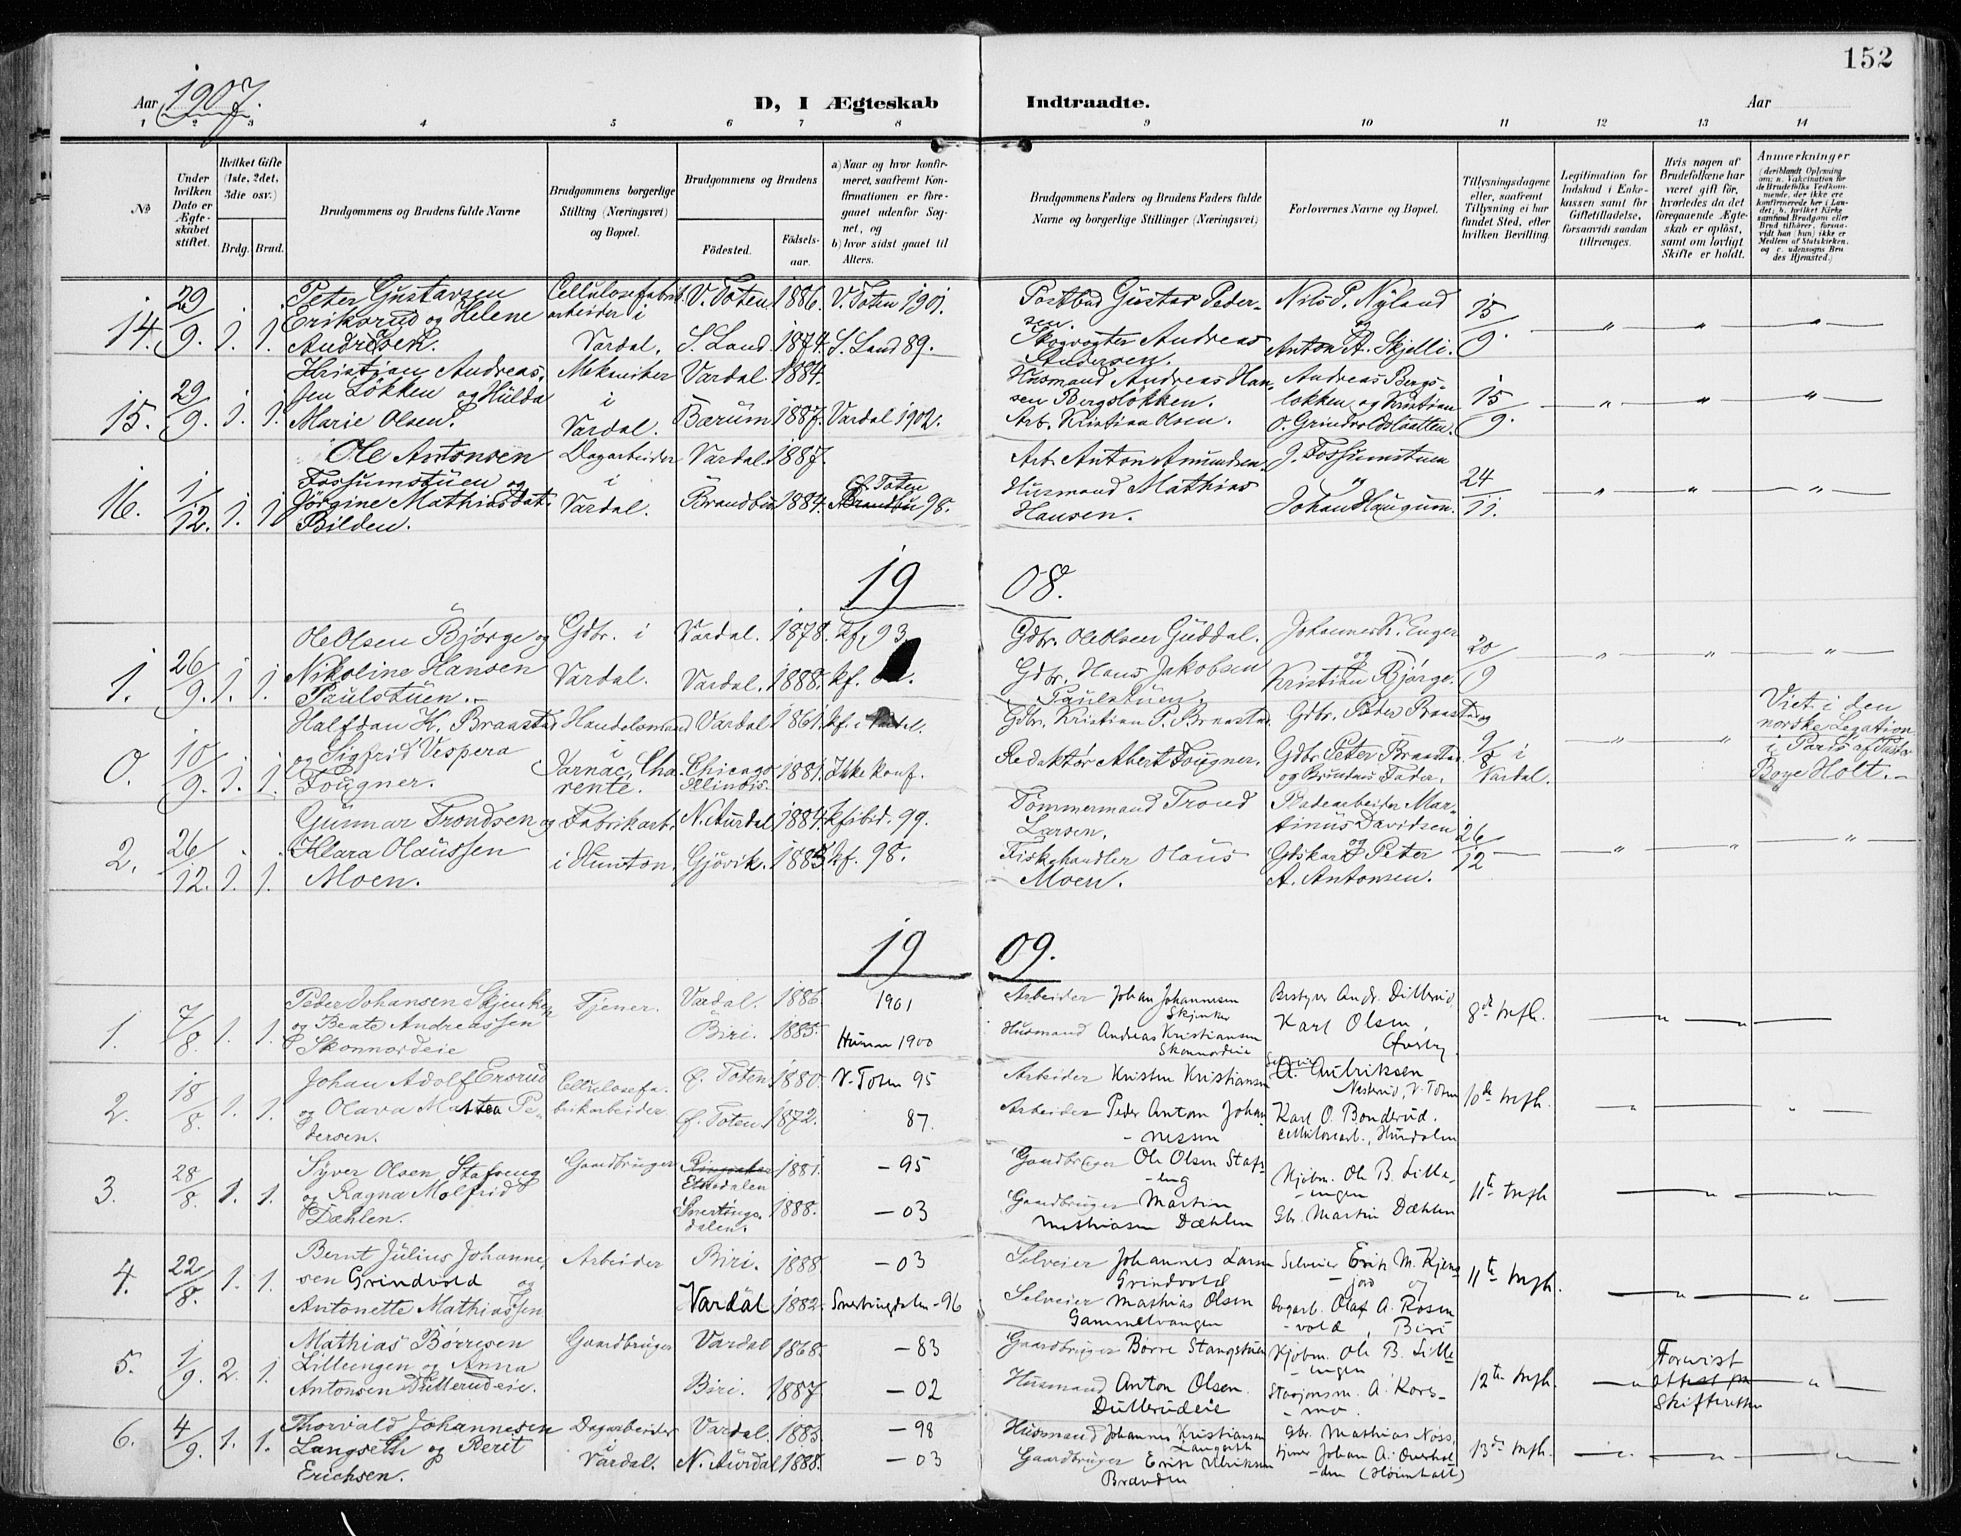 152
Aar 1907.
D, I Ægteskab Indtraadte. Aar
1 2 3 4 5 6 7 8 9 10 11 12 13 14
No
Under hvilken Dato er Ægteskabet stiftet.
Hvilket Gifte (1ste, 2det, 3die osv.)
Brdg. Brud.
Brudgommens og Brudens fulde Navne
Brudgommens borgerlige Stilling (Næringsvei) og Bopæl.
Brudgommens og Brudens
Fødested. Fødselsaar.
a) Naar og hvor konfirmeret, saafremt Konfirmationen er foregaaet udenfor Sognet, og
b) hvor sidst gaaet til Alters.
Brudgommens Faders og Brudens Faders fulde Navne og borgerlige Stillinger (Næringsvei)
Forlovernes Navne og Bopæl.
Tillysningsdagene eller, saafremt Tillysning ei har fundet Sted, efter hvilken Bevilling.
Legitimation for Indskud i Enkekassen samt for Giftetilladelse, forsaavidt saadan tiltrænges.
Hvis nogen af Brudefolkene har været gift før, hvorledes da det foregaaende Ægteskab er opløst, samt om lovligt Skifte er holdt.
Anmerkninger
14. 29/9. 1. 1.
Peter Gustavsen
Eriksrud og Helene
Andresen.
Cellulosefabrik
arbeider i
Vardal.
V. Toten 1886. V. Toten 1901.
S. Land. 1874. S. Land 89.
Postbud Gustav Pedersen.
Skogvogter Andreas
Andersen.
Nils P. Nyland
og
Anton A. Skjelli.
15/9.
15. 29/9. 1. 1.
Kristian Andreassen
Løkken og Hulda
Marie Olsen.
Mekaniker
i
Vardal.
Vardal. 1884.
Bærum 1887. Vardal 1902.
Husmand Andreas Hansen
Bergsløkken.
Arb. Kristian Olsen.
Andreas Bergsløkken
og Kristian
O. Grindvoldslaatten.
15/9.
16. 1/12. 1. 1
Ole Antonsen
Fossumstuen og
Jørgine Mathiasdat.
Bilden.
Dagarbeider
i
Vardal.
Vardal. 1887.
Brandbu 1884. Ø. Toten 98.
Arb. Anton Amundsen.
Husmand Mathias
Hansen.
J. Fossumstuen
og
Johan Haugum.
24/11.
19 08.
1. 26/9. 1. 1.
Ole Olsen Bjørge og
Nikoline Hansen
Paulstuen.
Gdbr. i
Vardal.
Vardal. 1878. kf. 93
Vardal. 1888. kf.
Gdbr. Ole Olsen Guddal.
Gdbr. Hans Jakobsen
Paulstuen.
Johannes K. Enger
og
Kristian Bjørge.
20/9
0. 10/9. 1. 1.
Halfdan H. Braastad
og Sigfrid Vespera
Fougner.
Handelsmand
i
Jarnac, Charente.
Vardal 1861. kf. i Vardal.
Chicago Illinois. 1881. Ikke konf.
Gdbr. Kristian P. Braastad.
Redaktør Albert Fougner.
Gdbr. Peder Braastad og
Gdbr. Peter Braastad
og Brudens Fader.
9/8 i
Vardal.
Viet i den
norske Legation
i Paris af Pastor
Boye Holt.
2. 26/12. 1. 1.
Gunnar Trondsen og
Klara Olaussen
Moen.
Fabrikarb.
i Hunton.
N. Aurdal 1884. kf. ibid. 99.
Gjøvik. 1883 kf. 98.
Tømmermand Trond
Larsen.
Fiskehandler Olaus
Moen.
Martinus Davidsen
og
Gdskar Peter
A. Antonsen.
26/12
19 09.
1. 7/8. 1. 1.
Peder Johansen Skjenken
og Beate Andreassen
Skonnordeie
Tjener.
Vardal. 1886. 1901
Biri. 1885. Hunn 1900
Arbeider Johan Johannesen
Skjenken
Husmand Andreas Kristiansen
Skonnordeie
Bestyrer Andr. Dillerud,
Karl Olsen,
Øverby.
8de mfl.
2. 18/8. 1. 1.
Johan Adolf Ersrud
og Olava Mathea Pedersen.
Cellulosefabrikarbeider.
Ø. Toten. 1880. V. Toten 95
Ø. Toten. 1872. 87.
Arbeider Kristen Kristiansen
Arbeider Peder Anton Johannessen
Selveier
A. Aulriksen
Nesterud, V. Toten
Karl O. Bonderud.
cellulosearb., Hurdalen
10de mfl.
3. 28/8. 1. 1.
Syver Olsen Stafseng
og Ragna Molfrid
Dæhlen.
Gaardbruger
Etnedalen 1881. – 95
Snertingdalen. 1888. – 03
Gaardbruger Ole Olsen Stafseng
Gaardbruger Martin
Mathiasen Dæhlen
Kjøbm. Ole B. Lilleengen
Gbr. Martin Dæhlen
11te mfl.
4. 22/8. 1. 1.
Bernt Julius Johannesen
Grindvold og
Antonette Mathiassen
Arbeider
Biri. 1888 – 03
Vardal 1882. Snertingdalen – 96
Selveier Johannes Larsen
Grindvold
Selveier Mathias Olsen
Gammelvangen
Selveier Erik M. Kjensjord
og
Dagarb. Olaf A. Rosenvold,
Biri
11te mfl.
5. 1/9. 2. 1.
Mathias Børresen
Lilleengen og Anna
Antonsen Dullerudeie.
Gaardbruger
Vardal 1868. – 83
Biri. 1887. – 02
Gaardbruger Børre Stangstuen
Husmand Anton Olsen.
Dullerudeie
Kjøbm. Ole B. Lilleengen
Stasjonsm. A. Korsmo.
12te mfl.
Forevist
attest fra
Skifteretten
6. 4/9. 1. 1.
Thorvald Johannesen
Langseth og Berit
Erichsen.
Dagarbeider
i
Vardal.
Vardal. 1885. – 98
N. Aurdal 1888. – 03
Husmand Johannes Kristiansen
Langseth
Gaardbruger Erik Ulriksen
Brænden
Gbr. Mathias Noss,
tjener Johan A. Overhalden
(Høimhall)
13de mfl.